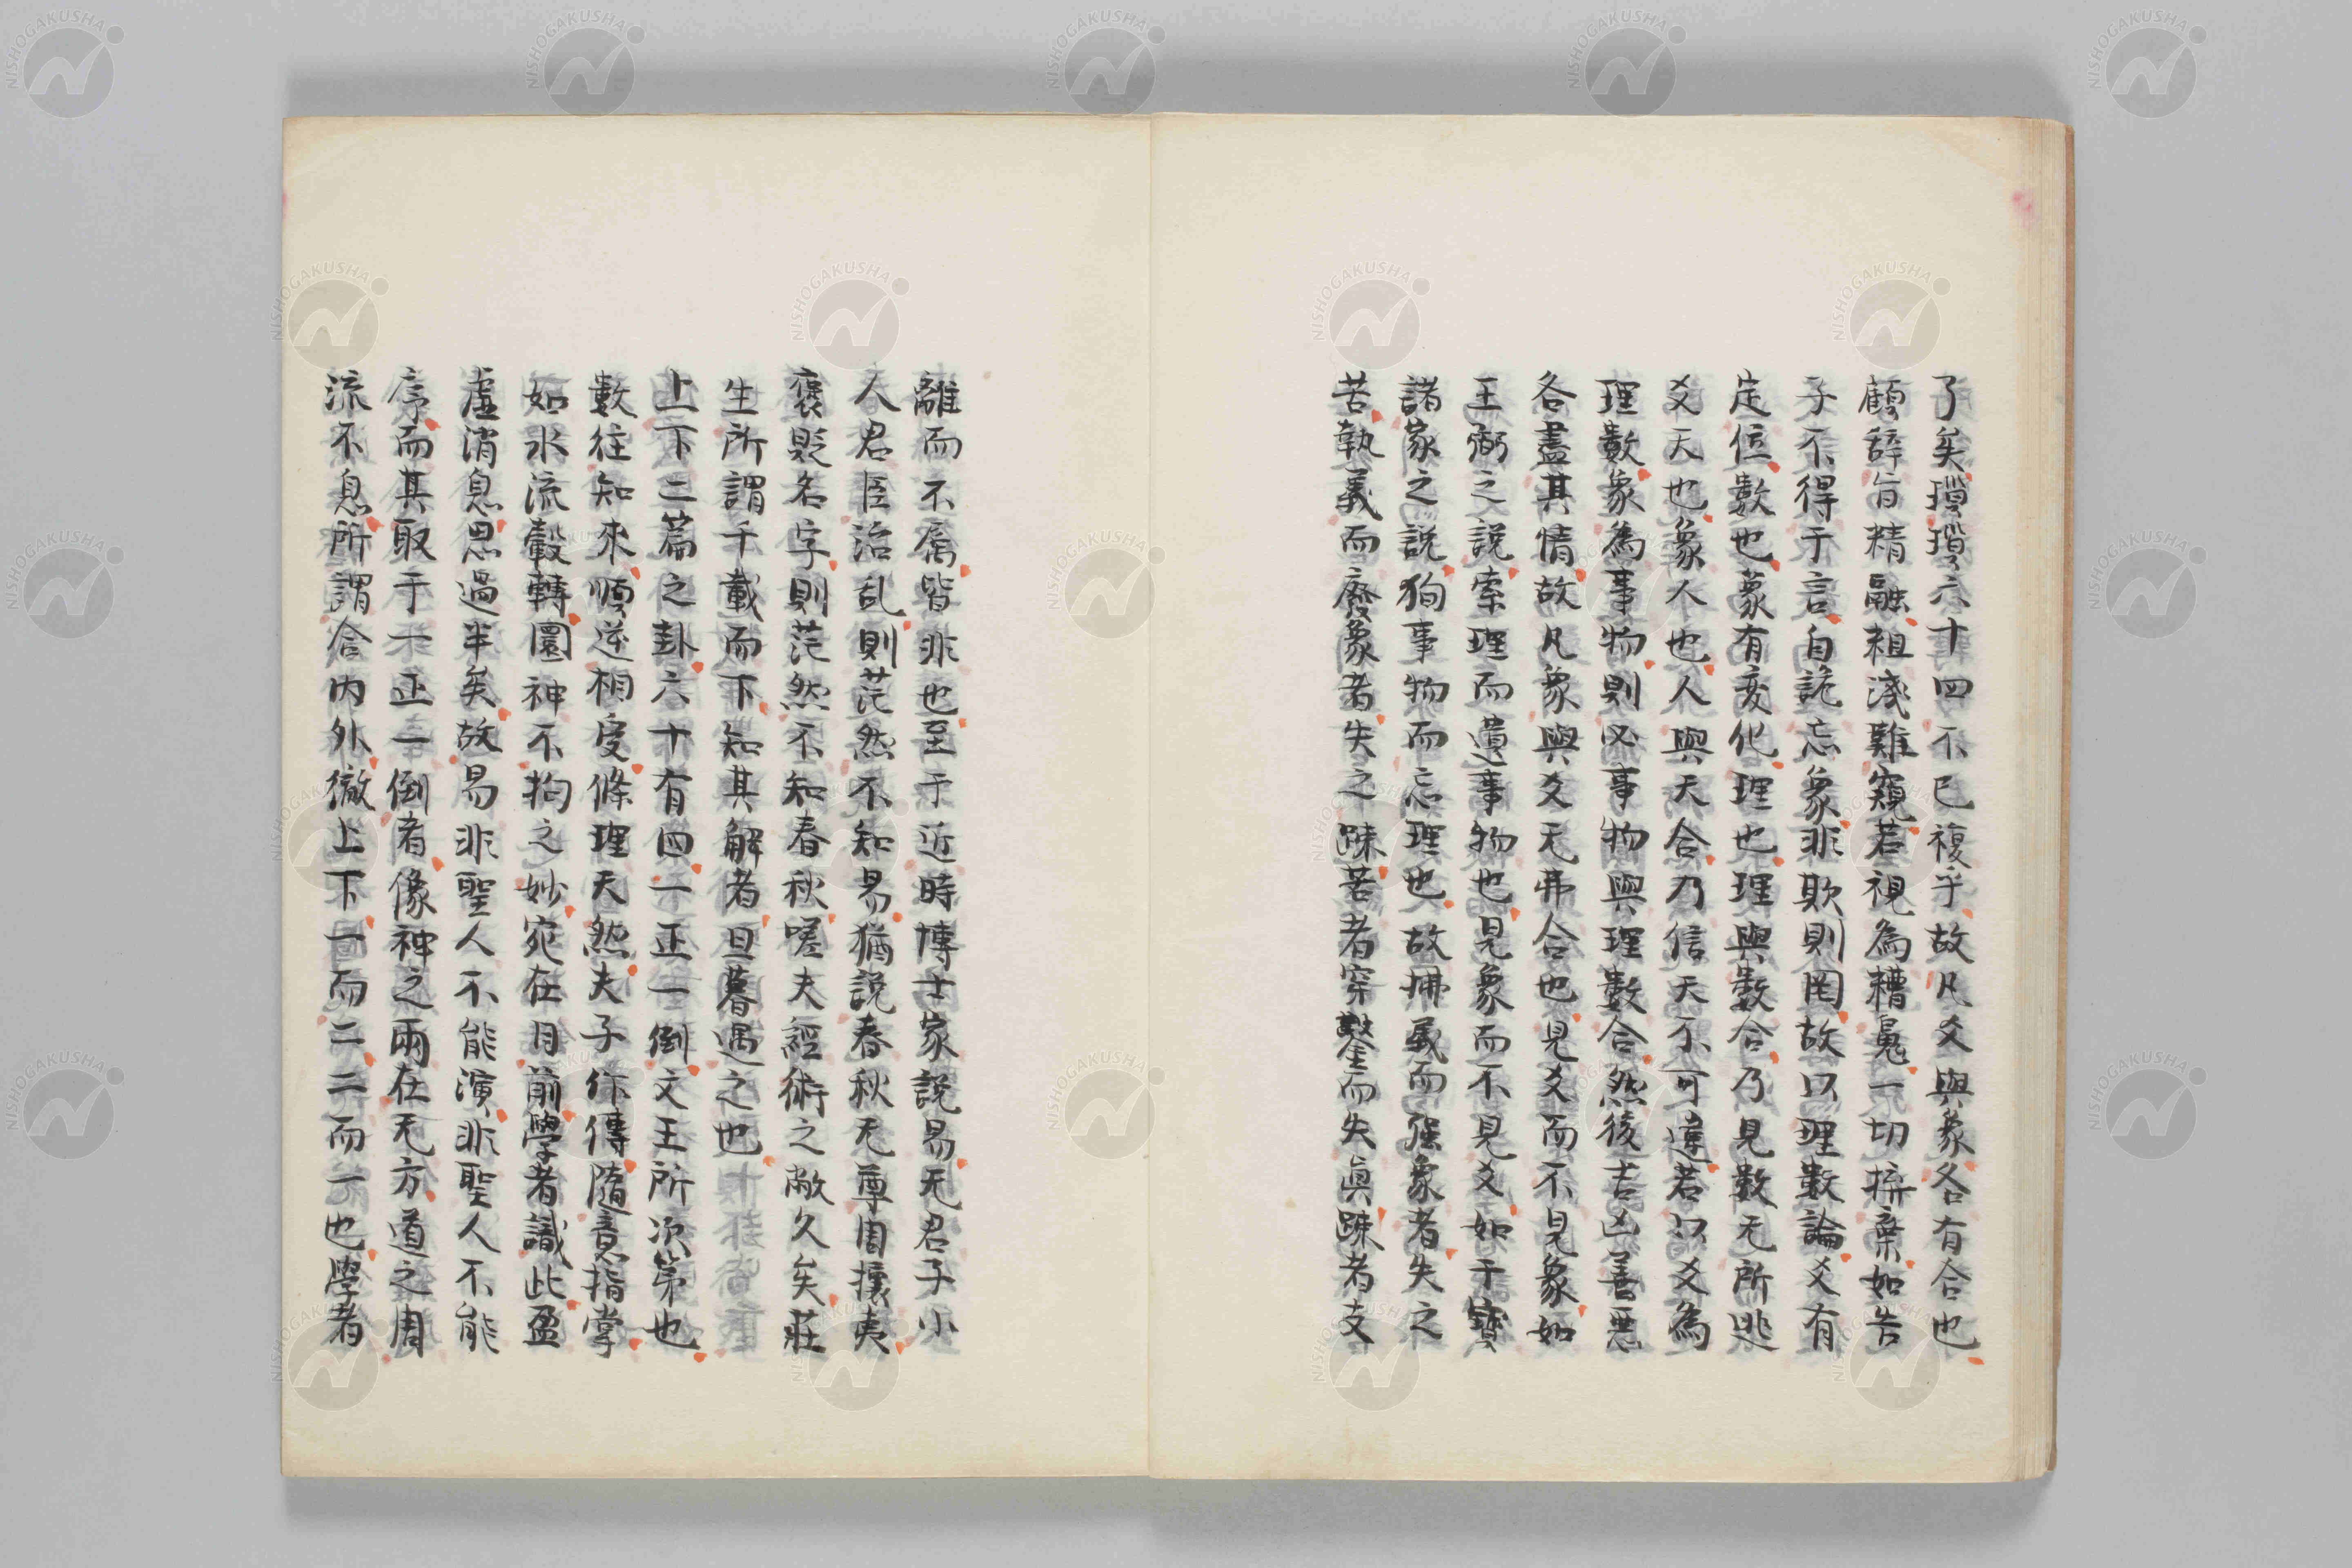 了矣瑣瑣六十四不已複乎故凡爻與象各有合也
顧辭旨精融粗淺難窺若視為糟鬼一切擯棄如告
子不得于言自詭忘象非欺則罔故以理數論爻有
定位數也象有変化理也理與數合乃見數无所逃
爻天也象人也人與天合乃信天不可違若以爻為
理數象為事物則必事物與理數合然後吉凶善惡
各盡其情故凡象與爻无弗合也見爻而不見象如
王弼之說索理而遺事物也見象而不見爻如于寶
諸家之說狥事物而忘理也故拂義而強象者失之
苦執義而廢象者失之踈苦者穿鑿而失眞踈者支
離而不属皆非也至于近時博士家說易无君子小
人君臣治乱則茫然不知易猶說春秋无尊周攘夷
褒貶名字則茫然不知春秋嗟夫經術之敝久矣莊
生所謂千載而下知其解者旦暮遇之也
上下二篇之卦六十有四一正一倒文王所次第也
數往知來順逆相受條理天然夫子作傳隨意指掌
如水流轂轉圜神不拘之妙宛在目前學者識此盈
虛消息思過半矣故易非聖人不能演非聖人不能
序而其取于一正一倒者像神之兩在无方道之周
流不息所謂合内外徹上下一而二二而一也學者